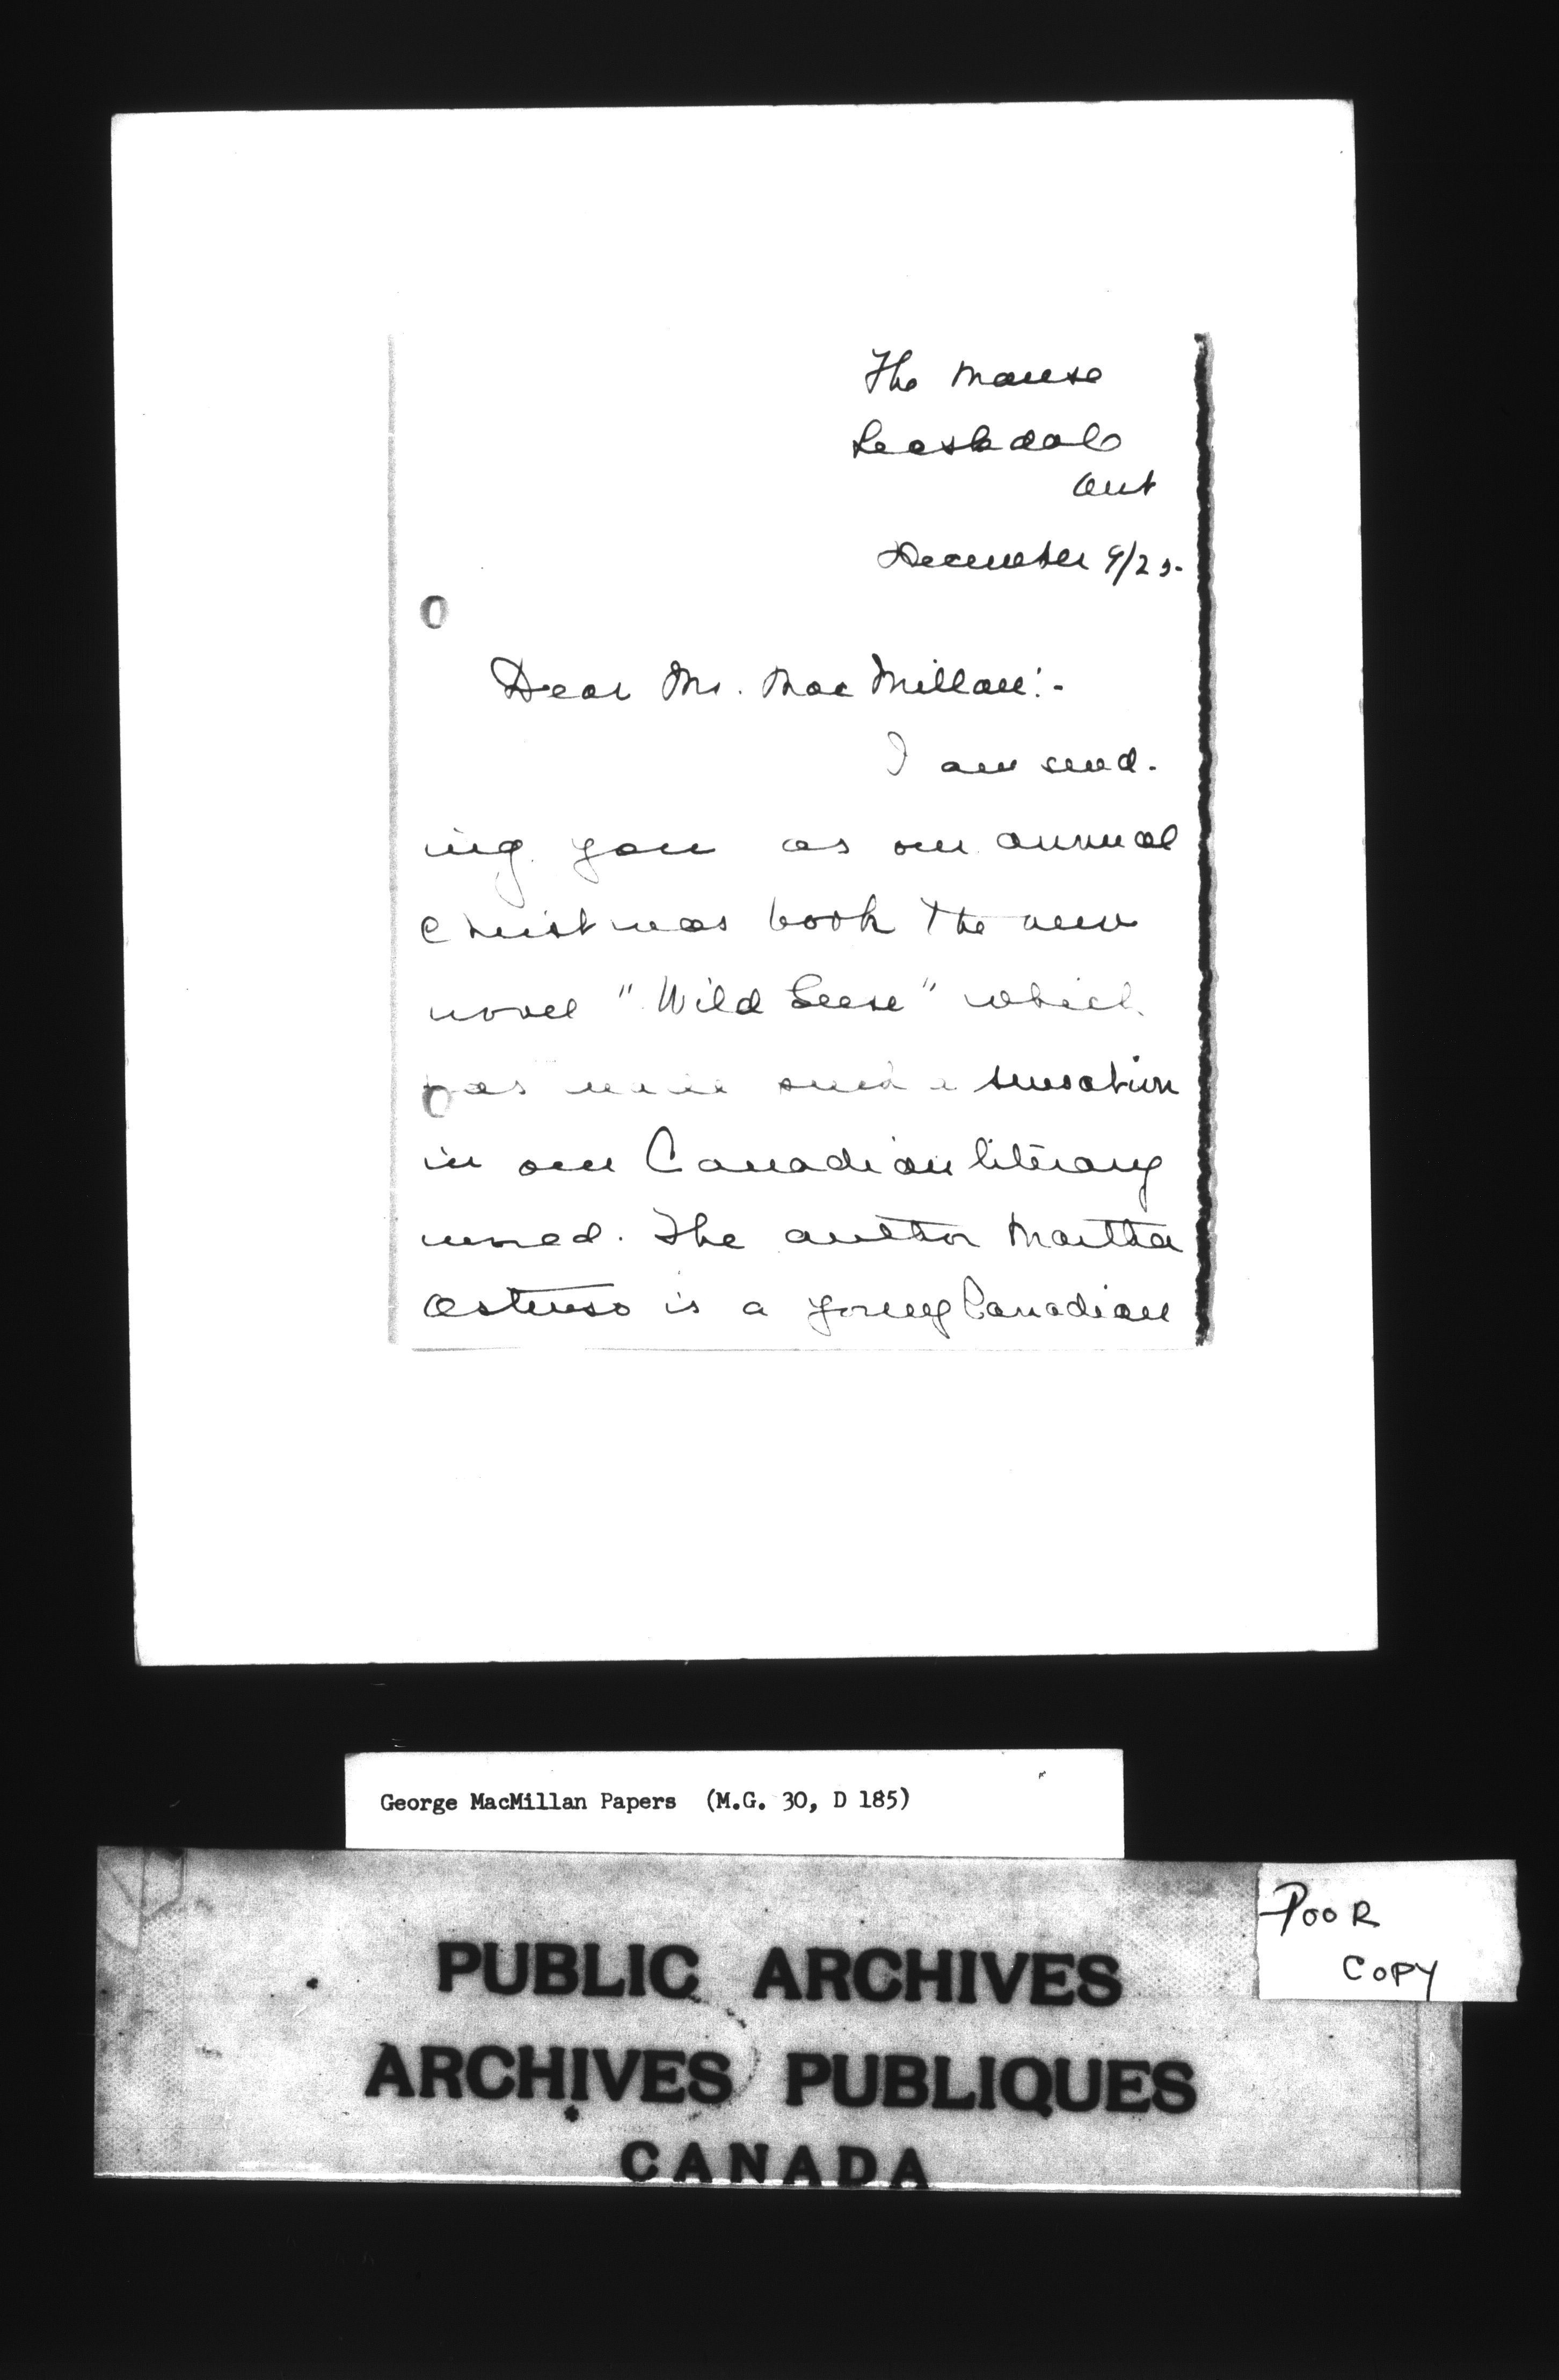 The Manse
Leaskdale
Ont
December 9/25.
Dear Mr. MacMillan:-
I am send-
ing you as our annual
Christmas book the new
novel "Wild Geese" which
has made such a sensation
in our Canadian literary
world. The author Martha
Ostenso is a young Canadian
George MacMillan Papers (M.G. 30, D 185)
POOR
COPY
PUBLIC ARCHIVES
ARCHIVES PUBLIQUES
CANADA